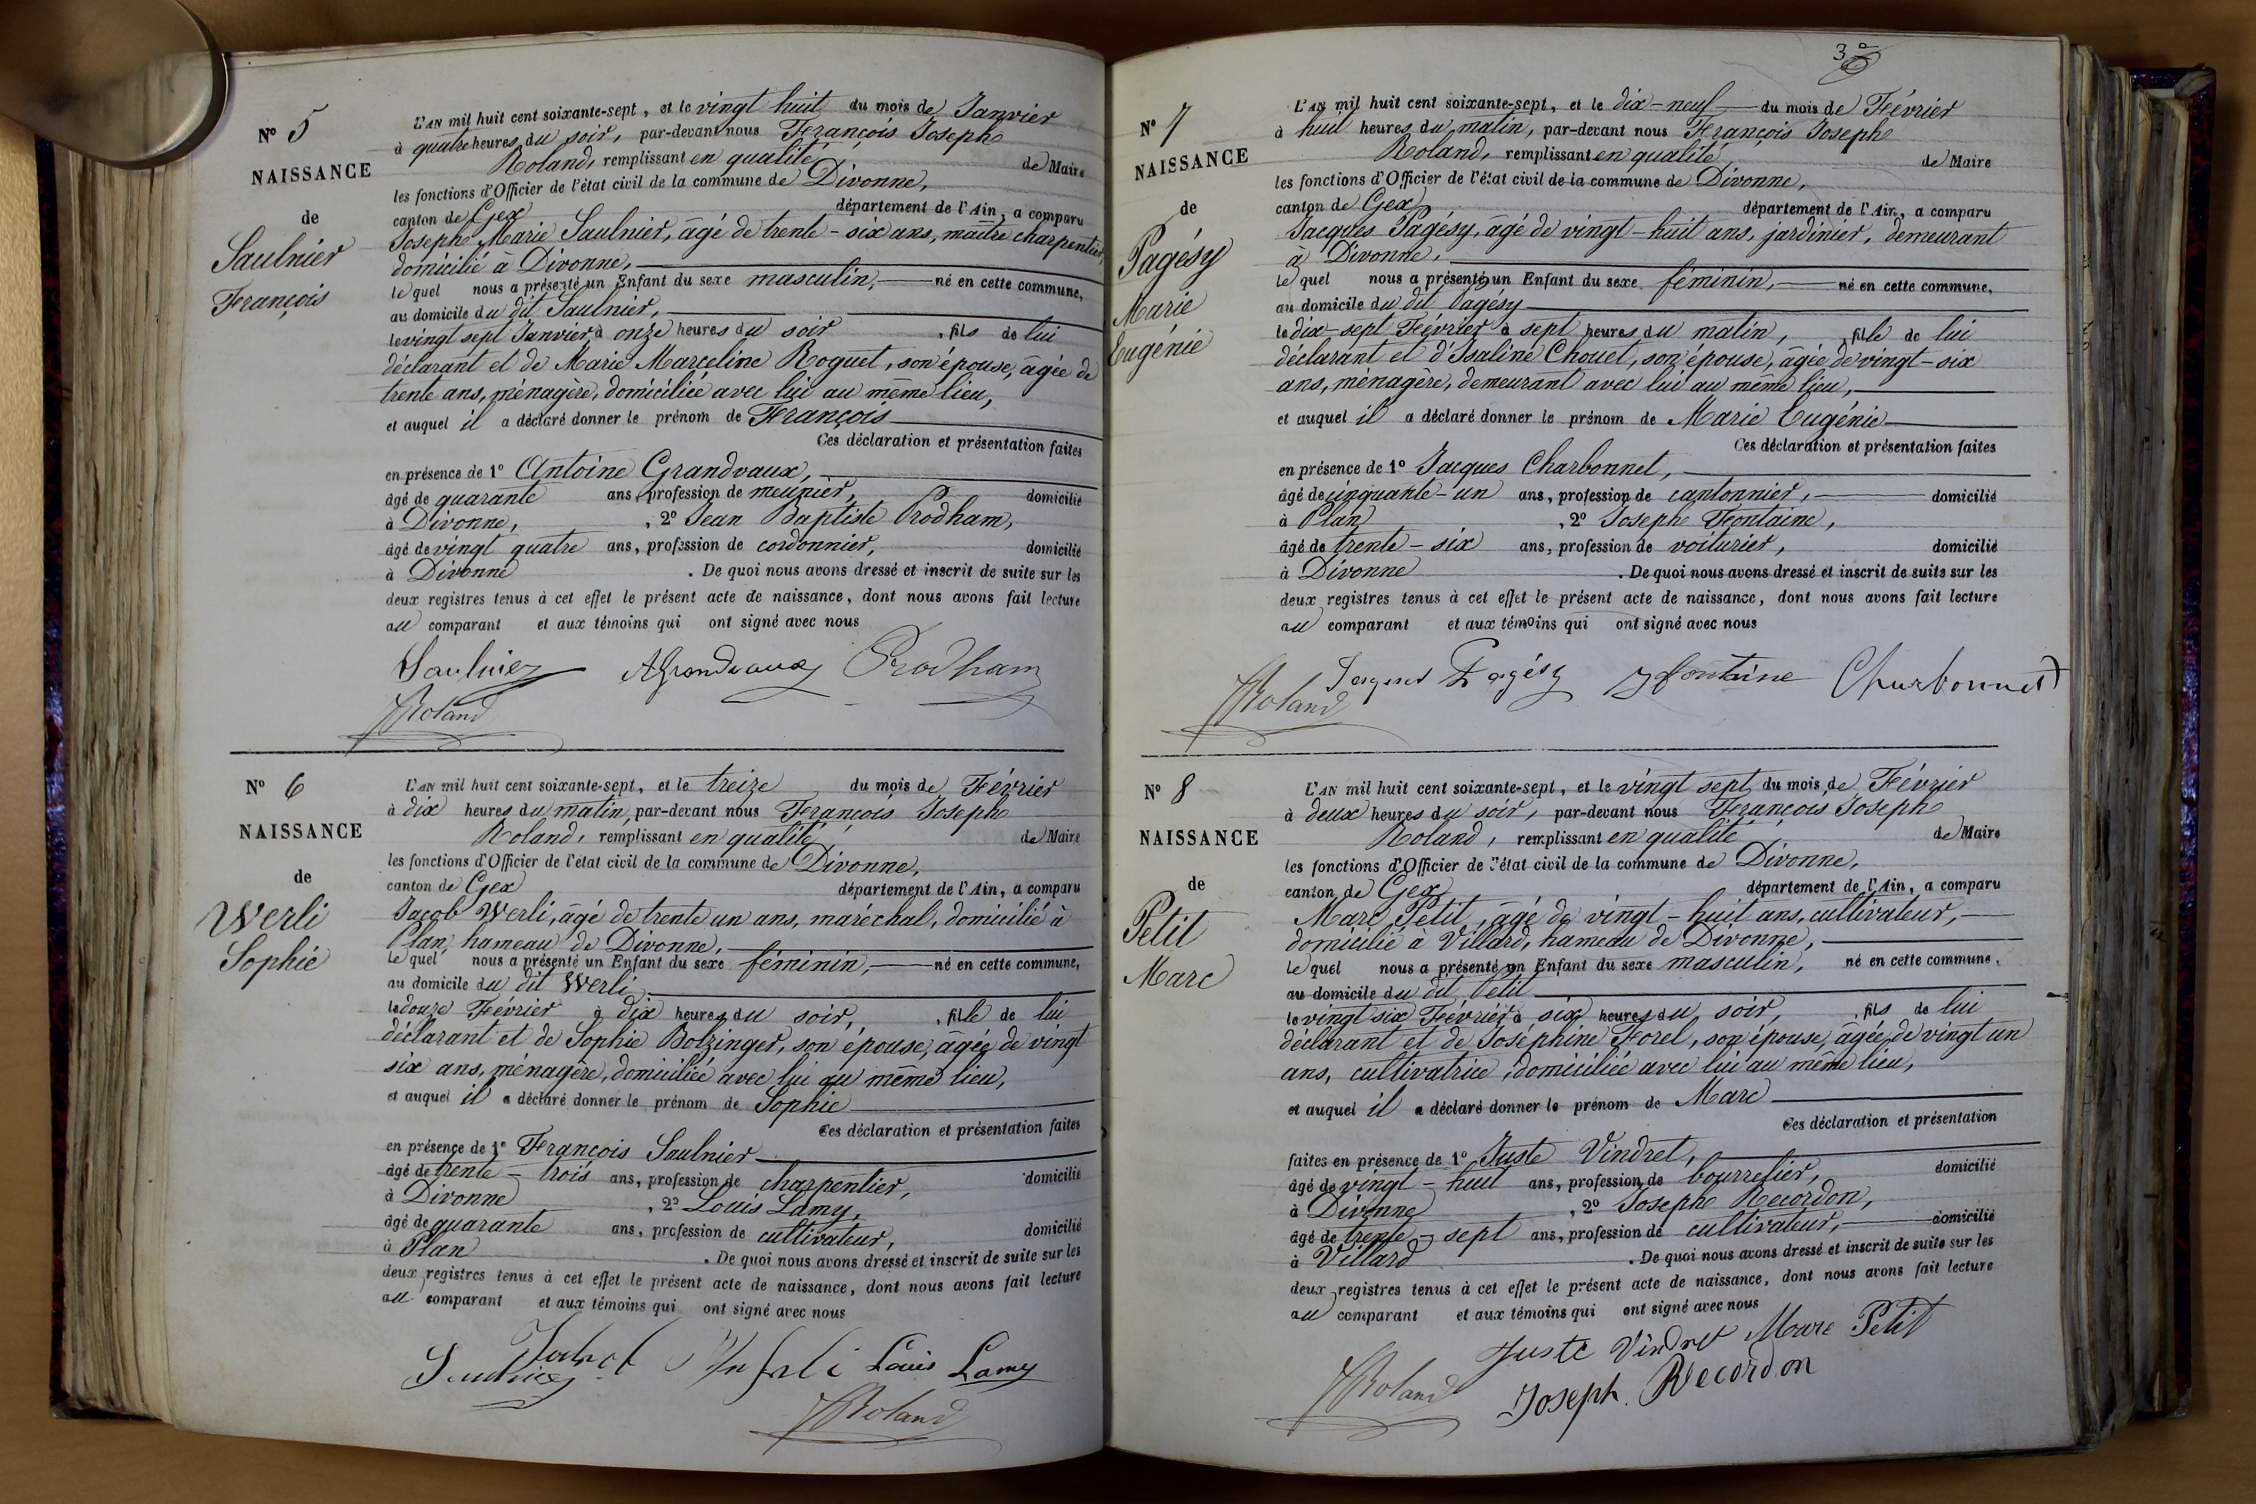 Nº 5
NAISSANCE
de
Saulnier
François
L'AN mil huit cent soixante-sept, et le vingt huit du mois de Janvier
à quatre heures du soir, par-devant nous François Joseph
Roland, remplissant en qualité de Maire
les fonctions d'Officier de l'état civil de la commune de Divonne,
canton de Gex département de l'Ain, a comparu
Joseph Marie Saulnier, âgé de trente-six ans, maître charpentier,
domicilié à Divonne,
lequel nous a présenté un Enfant du sexe masculin, né en cette commune,
au domicile du dit Saulnier,
le vingt sept Janvier à onze heures du soir, fils de lui
déclarant et de Marie Marceline Roguet, son épouse, âgée de
trente ans, ménagère, domiciliée avec lui au même lieu,
et auquel il a déclaré donner le prénom de François
Ces déclaration et présentation faites
en présence de 1º Antoine Grandvaux,
âgé de quarante ans, profession de meunier, domicilié
à Divonne, , 2º Jean Baptiste Prodham,
âgé de vingt quatre ans, profession de cordonnier, domicilié
à Divonne . De quoi nous avons dressé et inscrit de suite sur les
deux registres tenus à cet effet le présent acte de naissance, dont nous avons fait lecture
au comparant et aux témoins qui ont signé avec nous
Saulnier AGrandvaux Prodham
JRoland
Nº 6
NAISSANCE
de
Werli
Sophie
L'AN mil huit cent soixante-sept, et le treize du mois de Février
à dix heures du matin, par-devant nous François Joseph
Roland, remplissant en qualité de Maire
les fonctions d'Officier de l'état civil de la commune de Divonne,
canton de Gex département de l'Ain, a comparu
Jacob Werli, âgé de trente un ans, maréchal, domicilié à
Plan, hameau de Divonne,
lequel nous a présenté un Enfant du sexe féminin, né en cette commune,
au domicile du dit Werli,
le douze Février à dix heures du soir, fille de lui
déclarant et de Sophie Bolzinger, son épouse, âgée de vingt
six ans, ménagère, domiciliée avec lui au même lieu,
et auquel il a déclaré donner le prénom de Sophie
Ces déclaration et présentation faites
en présence de 1º François Saulnier
âgé de trente-trois ans, profession de charpentier, domicilié
à Divonne , 2º Louis Lamy,
âgé de quarante ans, profession de cultivateur, domicilié
à Plan . De quoi nous avons dressé et inscrit de suite sur les
deux registres tenus à cet effet le présent acte de naissance, dont nous avons fait lecture
au comparant et aux témoins qui ont signé avec nous
Saulnier Jacob Louis Lamy
JRoland
3
Nº 7
NAISSANCE
de
Pagésy
Marie
Eugénie
L'AN mil huit cent soixante-sept, et le dix-neuf du mois de Février
à huit heures du matin, par-devant nous François Joseph
Roland, remplissant en qualité de Maire
les fonctions d'Officier de l'état civil de la commune de Divonne,
canton de Gex département de l'Ain, a comparu
Jacques Pagésy, âgé de vingt-huit ans, jardinier, demeurant
à Divonne,
lequel nous a présenté un Enfant du sexe féminin, né en cette commune,
au domicile du dit Pagésy
le dix-sept Février à sept heures du matin, fille de lui
déclarant et d'Isaline Chouet, son épouse, âgée de vingt-six
ans, ménagère, demeurant avec lui au même lieu,
et auquel il a déclaré donner le prénom de Marie Eugénie
Ces déclaration et présentation faites
en présence de 1º Jacques Charbonnet,
âgé de cinquante-un ans, profession de cantonnier, domicilié
à Plan , 2º Joseph Fontaine,
âgé de trente-six ans, profession de voiturier, domicilié
à Divonne . De quoi nous avons dressé et inscrit de suite sur les
deux registres tenus à cet effet le présent acte de naissance, dont nous avons fait lecture
au comparant et aux témoins qui ont signé avec nous
Jaques Pagésy Jfontaine Churbonnet
JRoland
Nº 8
NAISSANCE
de
Petit
Marc
L'AN mil huit cent soixante-sept, et le vingt sept du mois de Février
à deux heures du soir, par-devant nous François Joseph
Roland, remplissant en qualité de Maire
les fonctions d'Officier de l'état civil de la commune de Divonne,
canton de Gex département de l'Ain, a comparu
Marc Petit, âgé de vingt-huit ans, cultivateur,
domicilié à Villard, hameau de Divonne,
lequel nous a présenté un Enfant du sexe masculin, né en cette commune,
au domicile du dit Petit
le vingt six Février à six heures du soir, fils de lui
déclarant et de Joséphine Forel, son épouse, âgée de vingt un
ans, cultivatrice, domiciliée avec lui au même lieu,
et auquel il a déclaré donner le prénom de Marc
Ces déclaration et présentation
faites en présence de 1º Juste Vindret,
âgé de vingt-huit ans, profession de bourrelier, domicilié
à Divonne , 2º Joseph Recordon,
âgé de trente-sept ans, profession de cultivateur, domicilié
à Villard . De quoi nous avons dressé et inscrit de suite sur les
deux registres tenus à cet effet le présent acte de naissance, dont nous avons fait lecture
au comparant et aux témoins qui ont signé avec nous
Juste Vindret Marc Petit
JRoland Joseph. Recordon